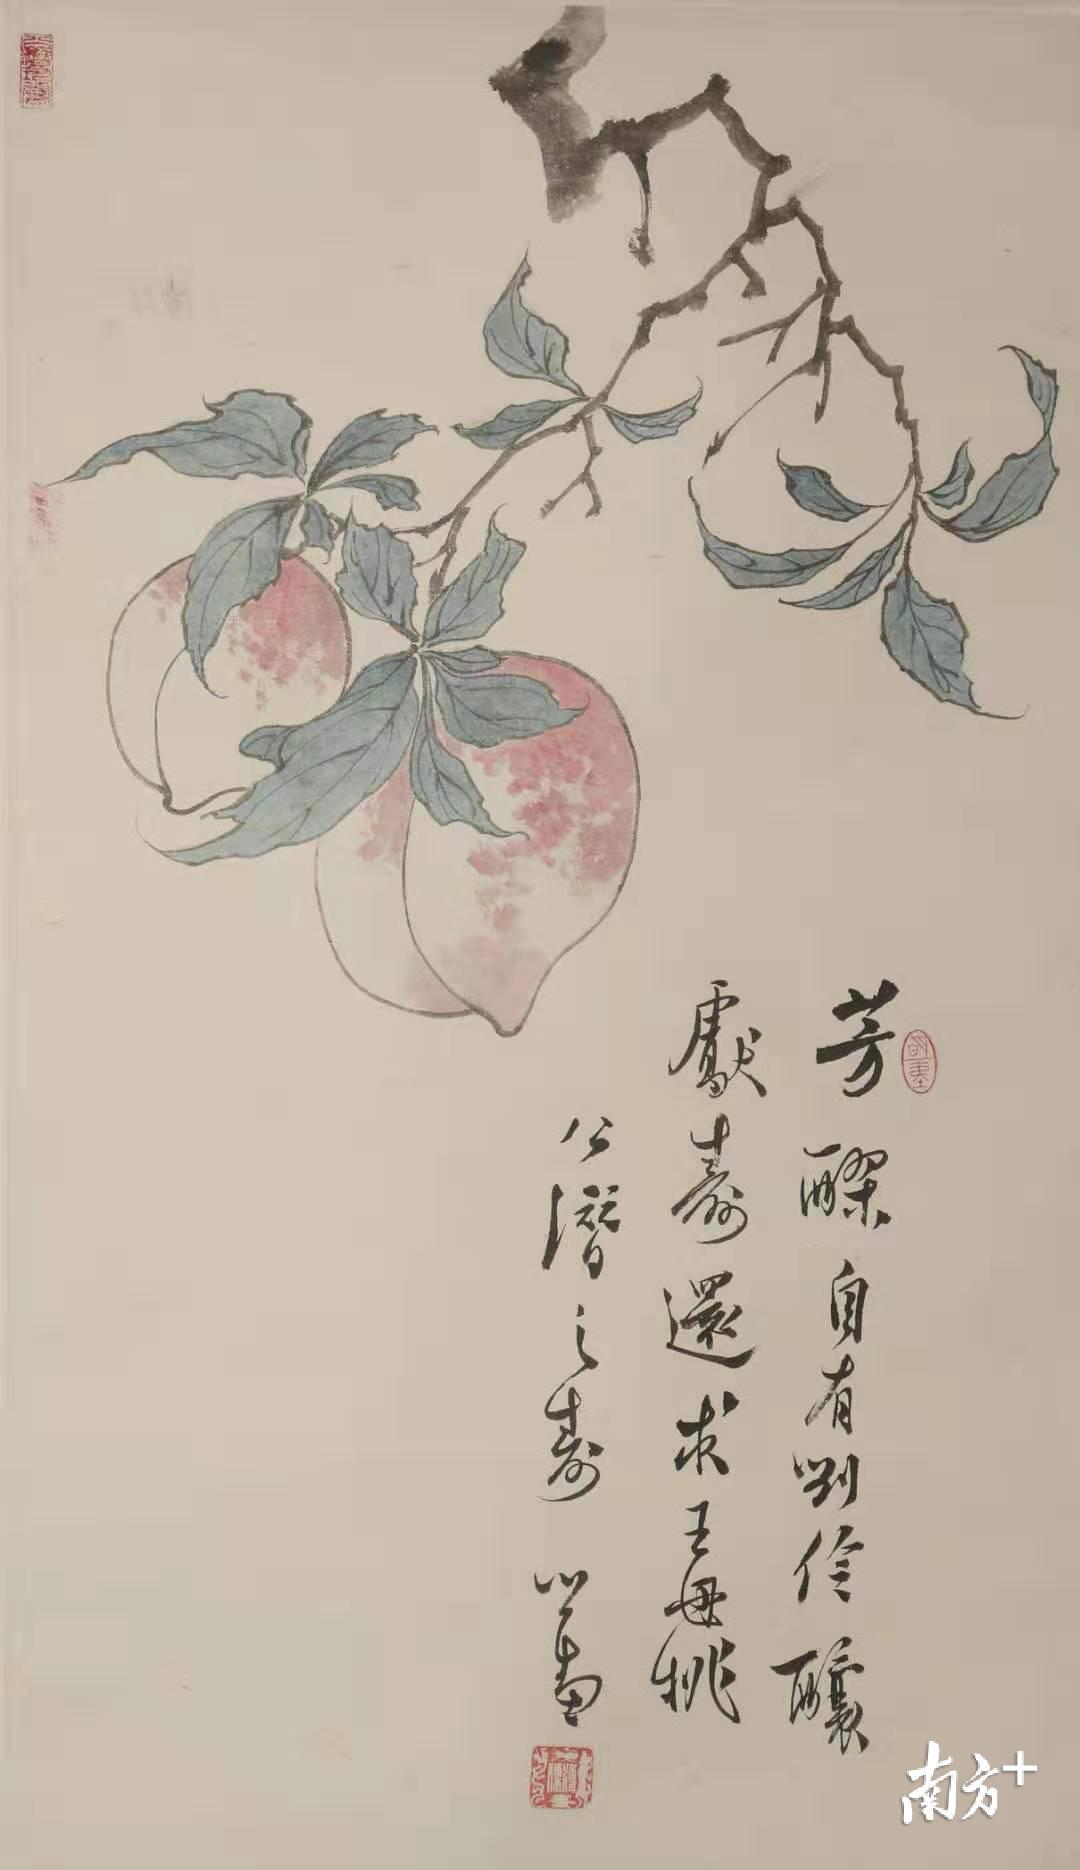 芳醪自有劉伶釀
獻壽還求王母桃
公潛之壽 心畬
南方+